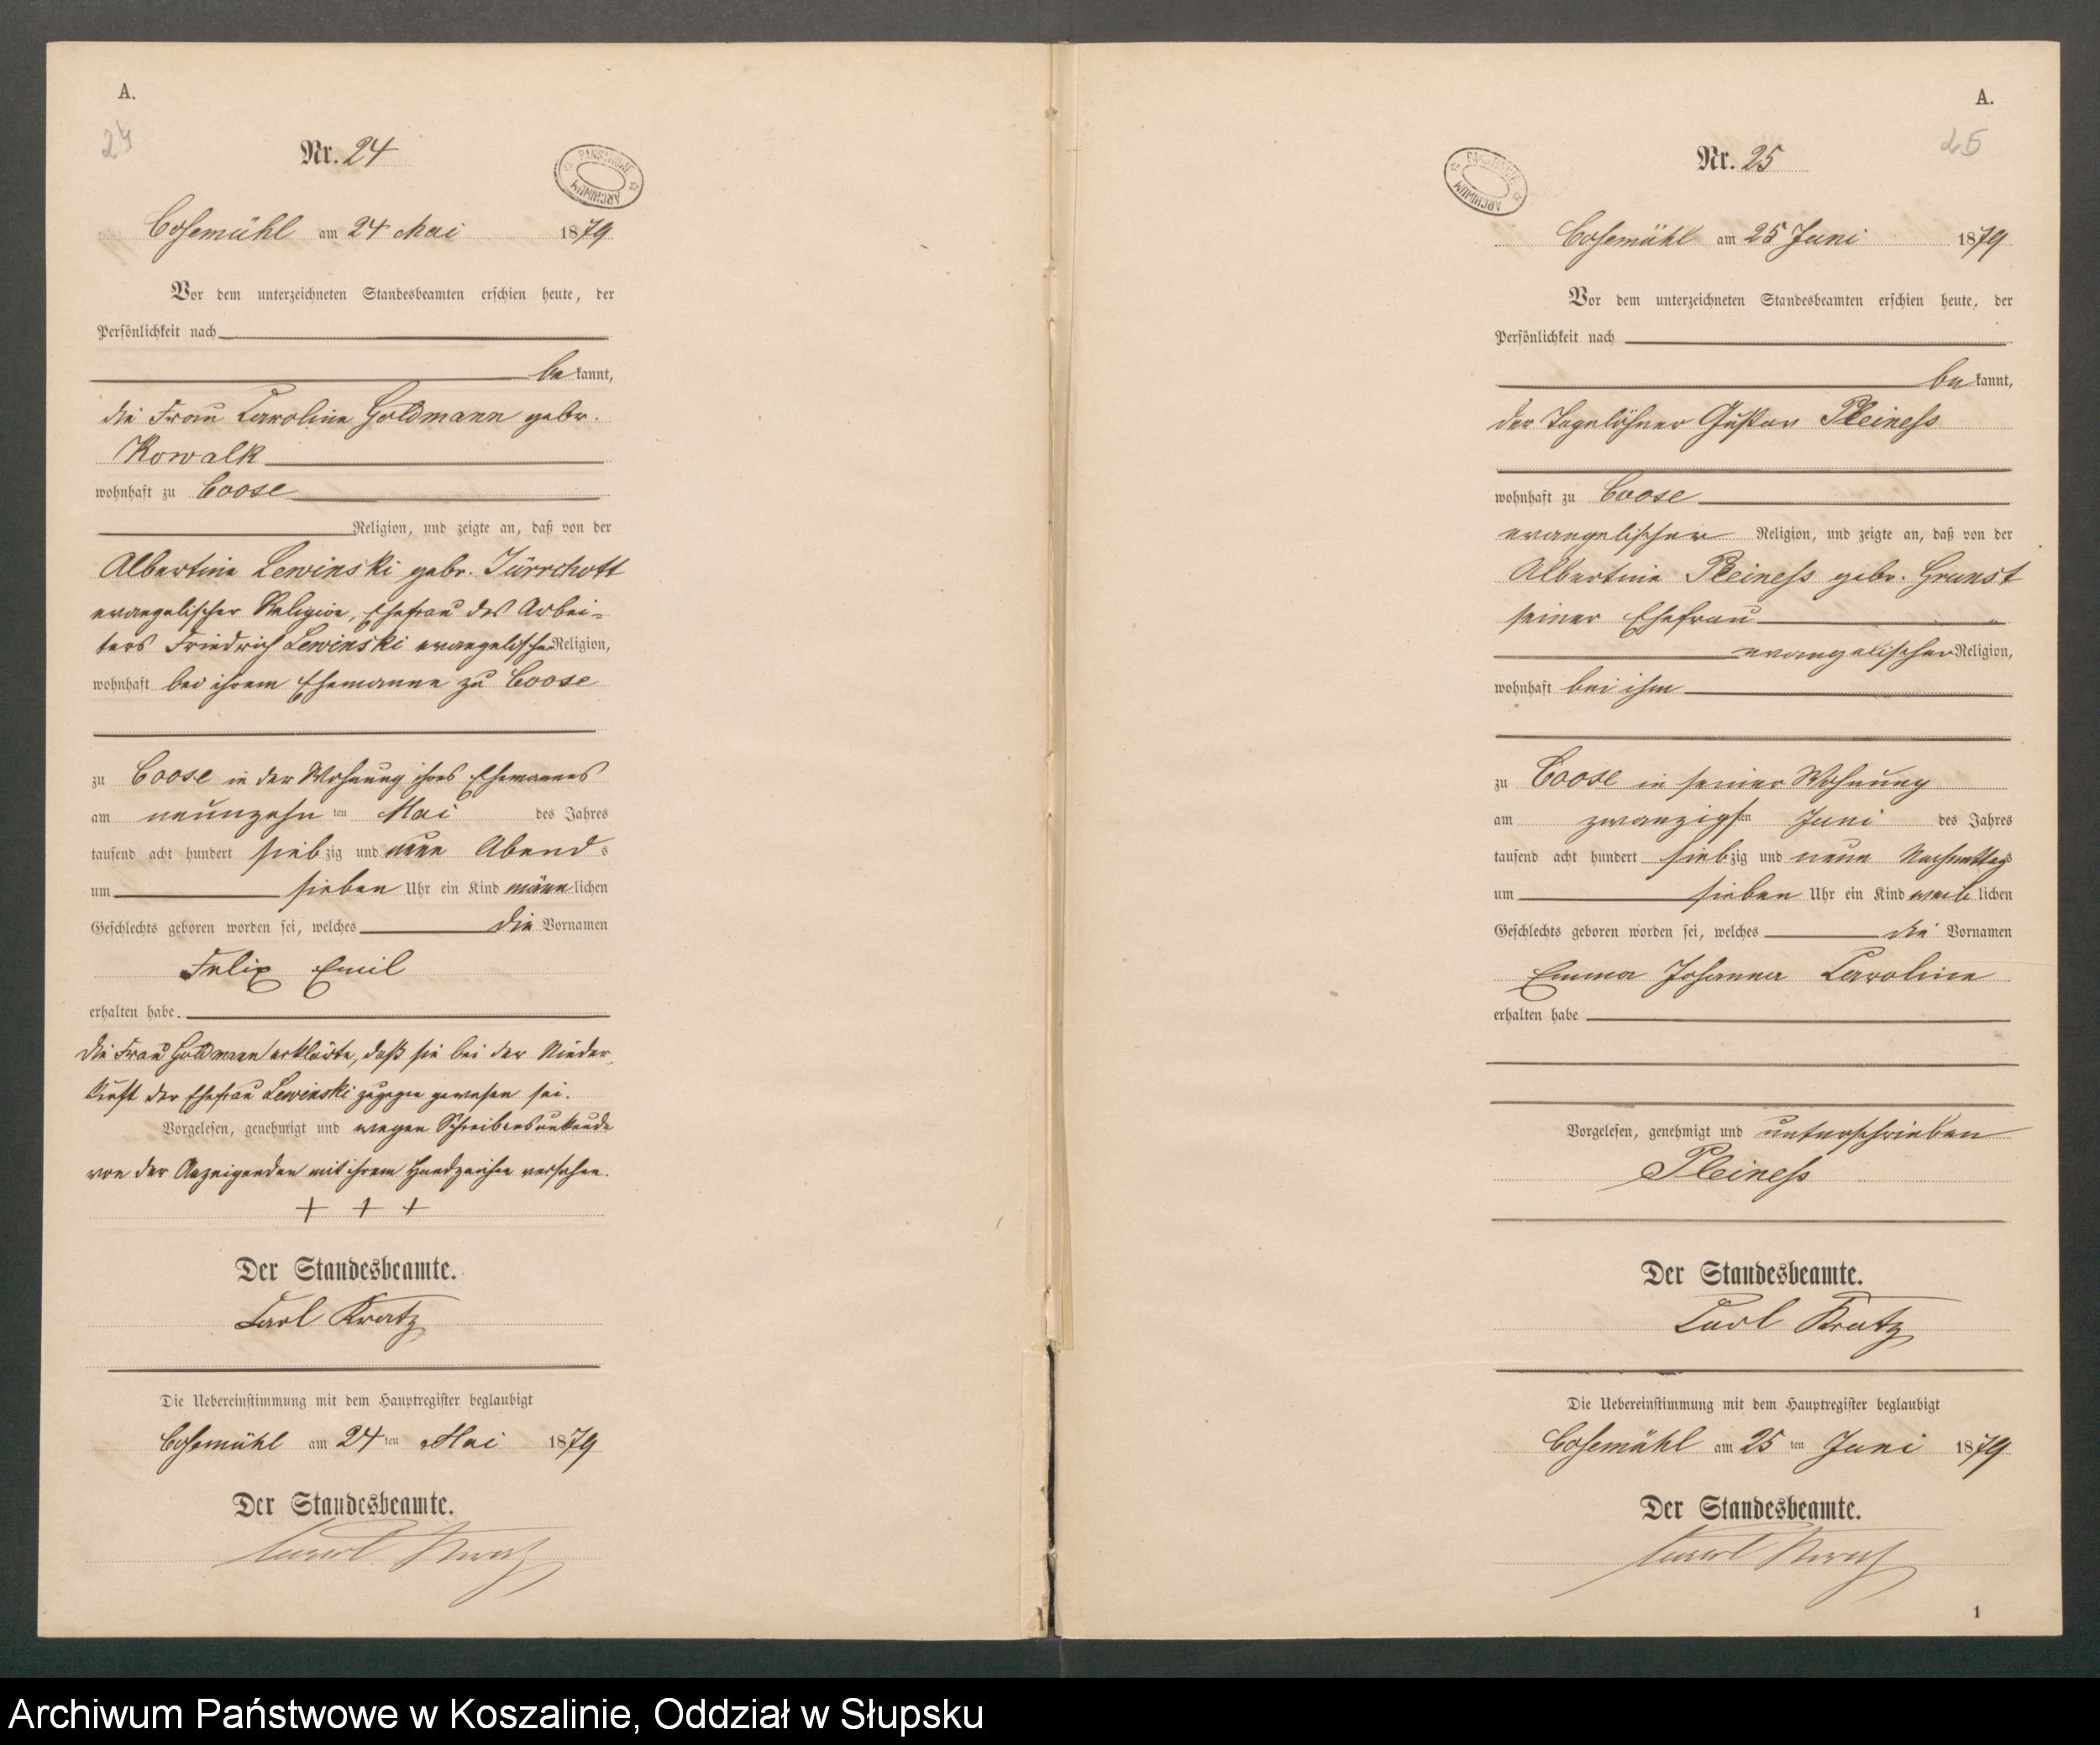 A.
24
Nr. 24
PAŃSTWOWE ARCHIWUM
Cosemühl am 24 Mai 1879
Vor dem unterzeichneten Standesbeamten erschien heute, der
Persönlichkeit nach
be kannt,
die Frau Caroline Goldmann gebr.
Kowalk
wohnhaft zu Coose
Religion, und zeigte an, daß von der
Albertine Lewinski gebr. Türrchott
evangelischer Religion, Ehefrau des Arbei-
ters Friedrich Lewinski evangelischer Religion,
wohnhaft bei ihrem Ehemanne zu Coose
zu Coose in der Wohnung ihres Ehemannes
am neunzehn ten Mai des Jahres
tausend acht hundert siebzig und neun Abends
um sieben Uhr ein Kind männlichen
Geschlechts geboren worden sei, welches die Vornamen
Felix Emil
erhalten habe.
Die Frau Goldmann erklärte, daß sie bei der Nieder-
kunft der Ehefrau Lewinski zugegen gewesen sei.
Vorgelesen, genehmigt und wegen Schreibensunkunde
von der Anzeigenden mit ihrem Handzeichen versehen.
+ + +
Der Standesbeamte.
Carl Kratz
Die Uebereinstimmung mit dem Hauptregister beglaubigt
Cosemühl am 24 ten Mai 1879
Der Standesbeamte.
Carl Kratz
A.
25
Nr. 25
PAŃSTWOWE ARCHIWUM
Cosemühl am 25 Juni 1879
Vor dem unterzeichneten Standesbeamten erschien heute, der
Persönlichkeit nach
be kannt,
der Tagelöhner Gustav Pleineß
wohnhaft zu Coose
evangelischer Religion, und zeigte an, daß von der
Albertine Pleineß gebr. Grunst
seiner Ehefrau
evangelischer Religion,
wohnhaft bei ihm
zu Coose in seiner Wohnung
am zwanzigsten Juni des Jahres
tausend acht hundert siebzig und neun Nachmittags
um sieben Uhr ein Kind weiblichen
Geschlechts geboren worden sei, welches die Vornamen
Emma Johanna Caroline
erhalten habe
Vorgelesen, genehmigt und unterschrieben
Pleineß
Der Standesbeamte.
Carl Kratz
Die Uebereinstimmung mit dem Hauptregister beglaubigt
Cosemühl am 25 ten Juni 1879
Der Standesbeamte.
Carl Kratz
1
Archiwum Państwowe w Koszalinie, Oddział w Słupsku